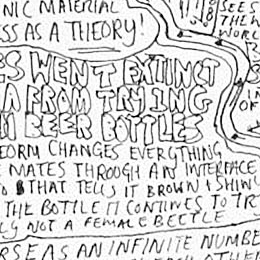 NIC MATERIAL
SS AS A THEORY!
SEES
THEM
WORL
ES WENT EXTINCT
A FROM TRYING
M BEER BOTTLES
IN
OF
FORM CHANGES EVERYTHING
MATES THROUGH AN INTERFACE
THAT TELLS IT BROWN & SHINY
THE BOTTLE IT CONTINUES TO TR
LY NOT A FEMALE BEETLE
RSE AS AN INFINITE NUMBE